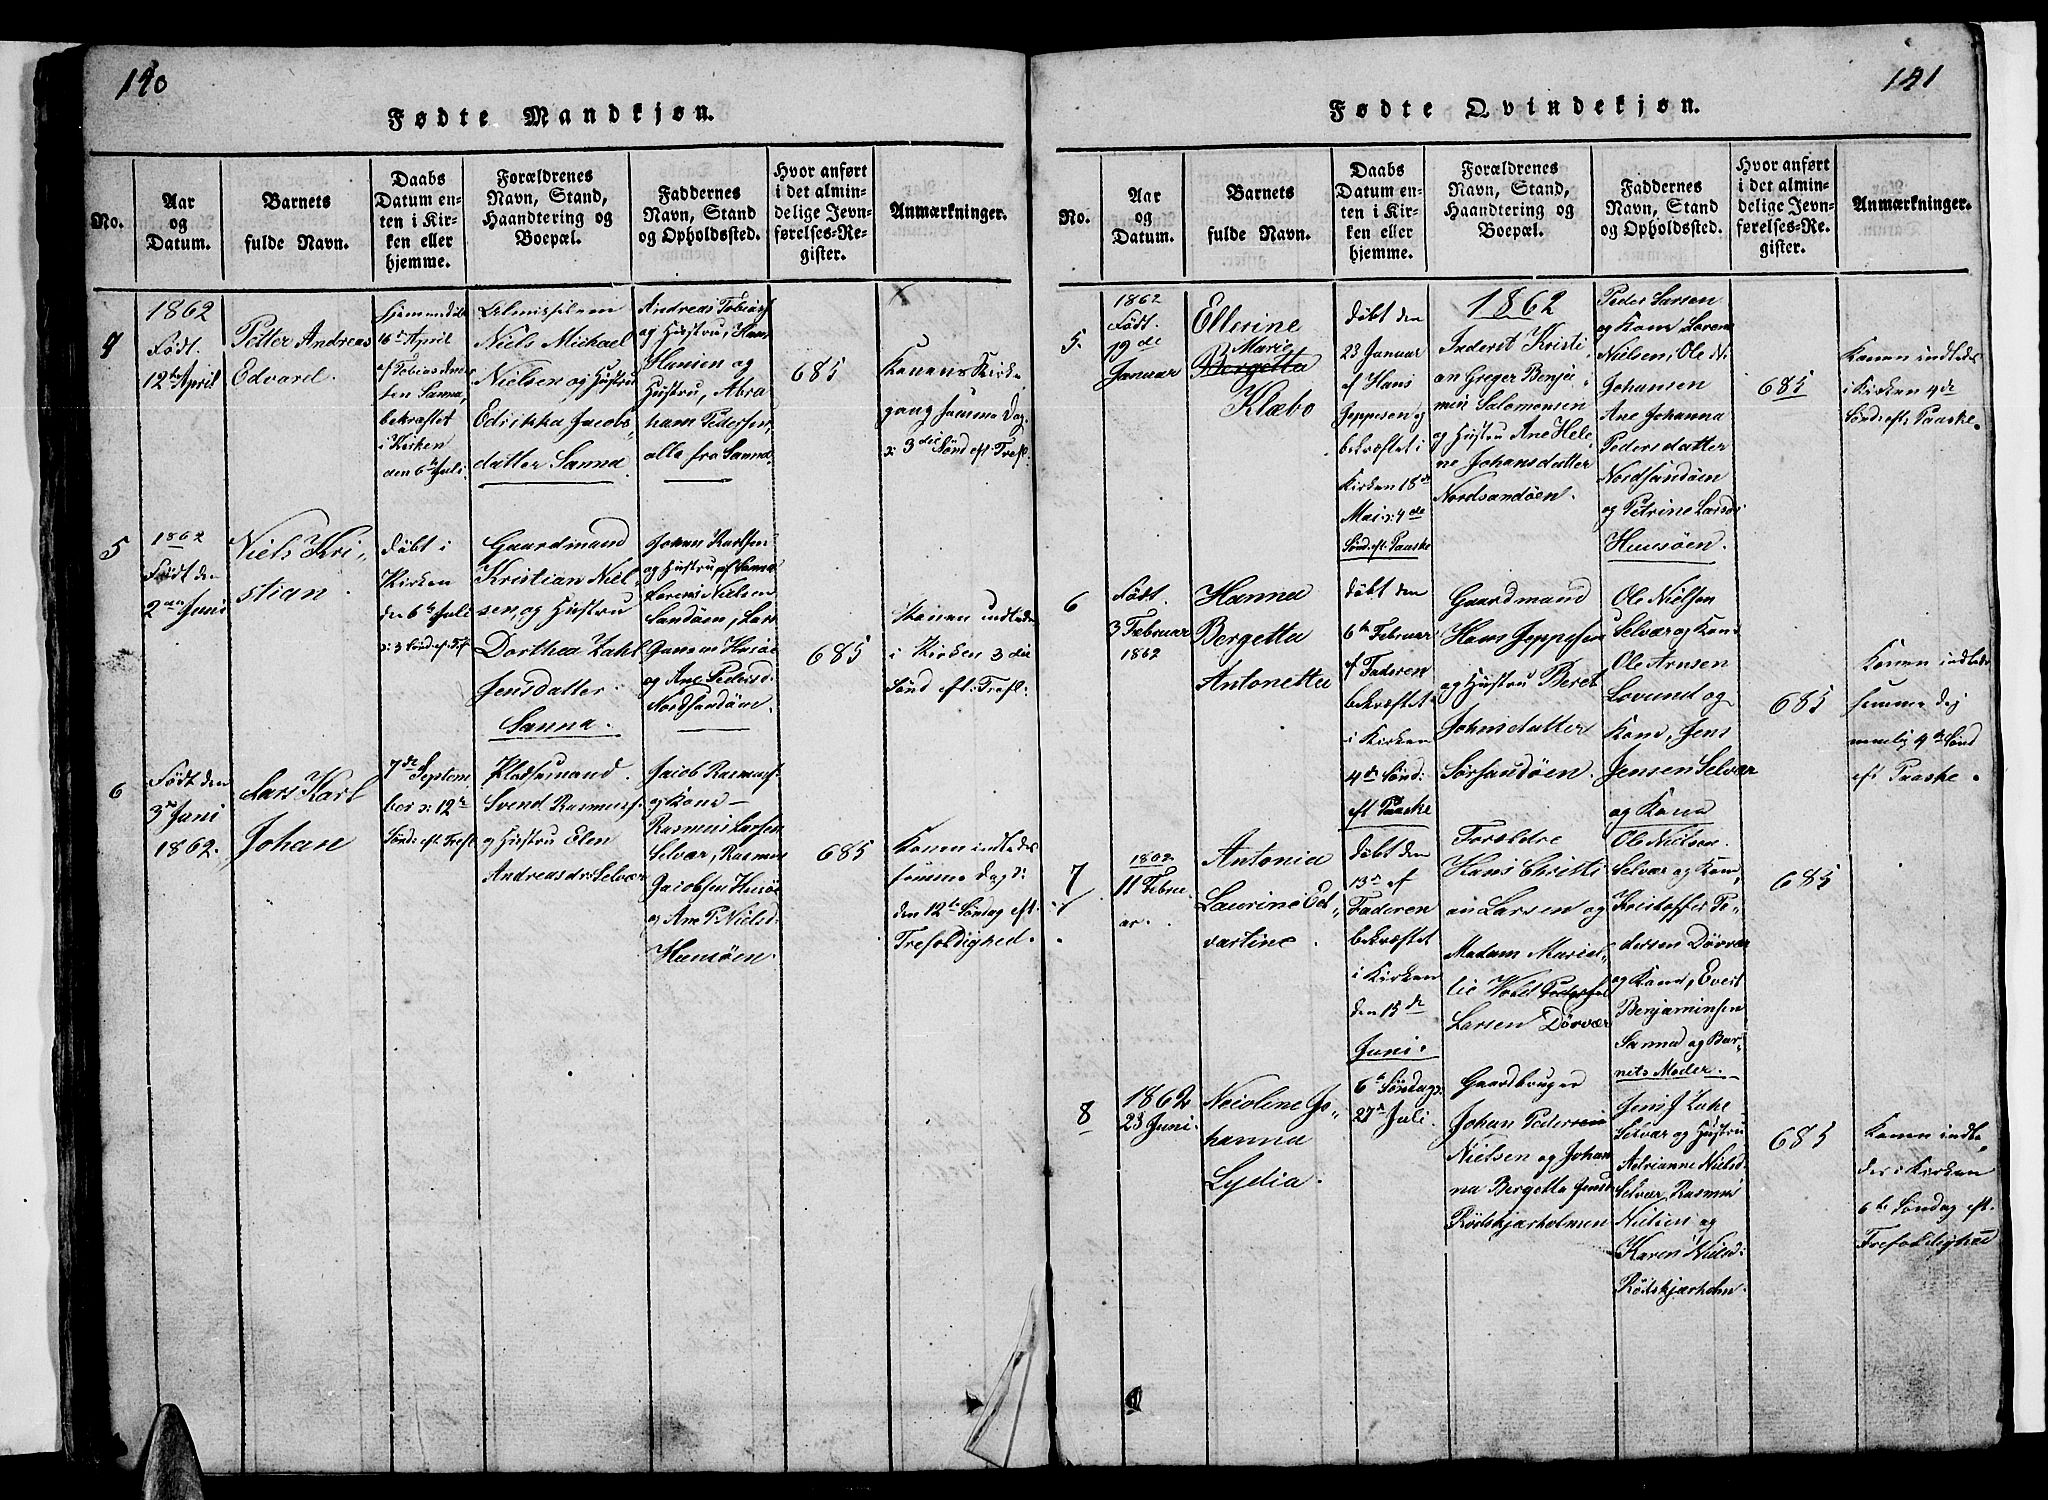 140
Fødte Mandkjøn.
No.
Aar
og
Datum.
Barnets
fulde Navn.
Daabs
Datum en-
ten i Kir-
ken eller
hjemme.
Forældrenes
Navn, Stand,
Haandtering og
Boepæl.
Faddernes
Navn, Stand
og Opholdssted.
Hvor anført
i det almin-
delige Jevn-
førelses-Re-
gister.
Anmærkninger.
4
1862
Født.
12te April
Petter Andreas
Edvard.
16de April
af Tobias
Sanna,
bekræftet
i Kirken
den 6te Juli.
Niels Michael
Nielsen og Hustru
Edrikka Jacobs-
datter Sanna
Andreas Tobias
og Hustru, Hans
Hansen og
Hustru, Abra
ham Pedersen,
alle fra Sanna.
685
x
Konens Kirke
gang samme Dag
3: 3die Sønd eft Tref.
5
1862
Født den
2den Juni
Niels Kri-
stian.
Døbt i
Kirken
den 6te Juli
Gaardmand
Kristian Niel-
sen, og Hustru
Dorthea Zahl
Jensdatter.
Sanna.
Johan Karlsen
og Hustru af Sanna
Lorens Nielsen
Sandøen, Lars
og Ane Pedersd:
Nordsandøen.
685
Konen indledes
i Kirken 3die
Sønd eft: Tref:
6
Født den
3die Juni
1862.
Lars Karl
Johan
7de Septem
ber 3: 12te
Sønd: eft Tref.
Pladsmand.
Svend Rasmuss.
og Hustru Elen
Andreasdr Selvær
Jacob Rasmuss:
og Kone –
Rasmus Larsen
Selvær, Rasmus
Jacobsen Husøe
og Ane P. Nielsd:
Huusøen.
685
Konen indledes
samme Dag 3:
den 12te Søndag eft.
Trefoldighed.
141
Fødte Qvindekjøn.
No.
Aar
og
Datum.
Barnets
fulde Navn.
Daabs
Datum en-
ten i Kir-
ken eller
hjemme.
Forældrenes
Navn, Stand,
Haandtering og
Boepæl.
Faddernes
Navn, Stand
og Opholdssted.
Hvor anført
i det almin-
delige Jevn-
førelses-Re-
gister.
Anmærkninger.
5.
1862
Født.
19de
Januar
Ellerine
Marie
Bergetta
Klæbo
Døbt den
23 Januar
af Hans
Jeppesen og
bekræftet i
Kirken 18de
Mai 3: 4de
Sønd eft. Paaske
1862
Inderst Kristi
an Greger Benja
min Salomonsen
og Hustru Ane Hele
ne Johansdatter
Nordsandøen.
Peder Larsen
og Kone, Lorens
Nielsen, Ole N.
Johansen
Ane Johanna
Pedersdatter
Nordsandøen
og Petrine Larsdr
Huusøen.
685
Konen indledes
i Kirken 4de
Sønd eft. Paaske.
6
Født.
3 Februar
1862
Hanna
Bergetta
Antonetta
Døbt den
6te Februar
af Faderen
bekræftet
i Kirken
4de Sønd:
eft Paaske
Gaardmand
Hans Jeppesen
og Hustru Beret
Johnsdatter
Sørsandøen.
Ole Nielsen
Selvær og Kone
Ole Arnsen
Lovund og
Kone, Jens
Jensen Selvær
og Kone
685
Konen indledes
samme Dag
nemlig 4de Sønd
eft Paaske.
7
1862
11 Febru
ar.
Antonia
Laurine Ed-
vartine.
Døbt den
13de af
Faderen
bekræftet
i Kirken
den 15de
Juni.
Forældre
Hans Christi
an Larsen og
Madam
lie Wold
Larsen Dørvær
Ole Nielsen
Selvær og Kone,
Kristoffer Pe-
dersen Dørvær
og Kone, Evert
Benjaminsen
Sanna og Bar-
nets Moder.
685
8
1862
23 Juni.
Nicoline Jo-
hanna
Lydia.
6te Søndag
27de Juli.
Gaardbruger
Johan Pedersen
Nielsen og Johan
na Bergetta Jensd
Rødskjærholmen
Jens J. Zahl
Selvær og Hustru
Adrianne Nielsd:
Selvær, Rasmus
Nielsen og
Karen Nielsd:
Rødskjærholm.
685
Konen indle
des i Kirken
6te Søndag eft.
Trefoldighed